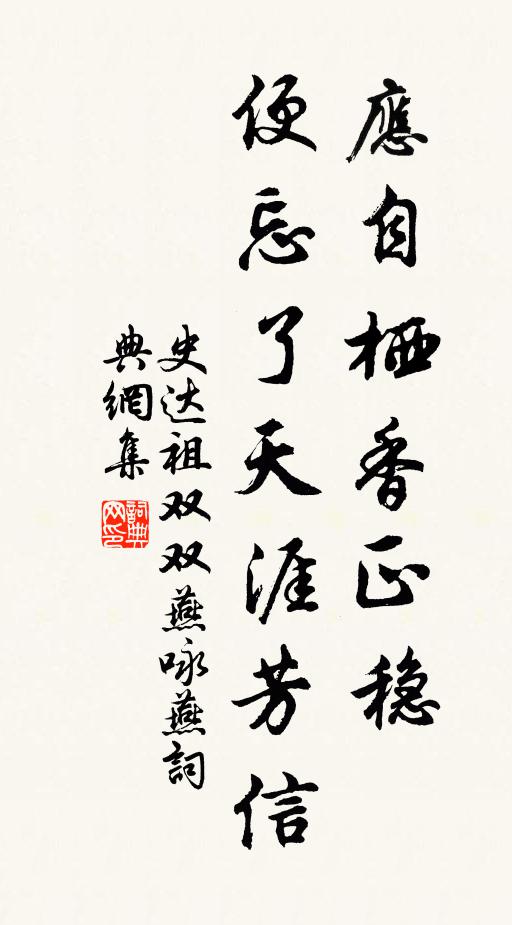 應自栖香正稳
便忘了天涯芳信
史达祖双双燕咏燕詞
典網集
詞典网印